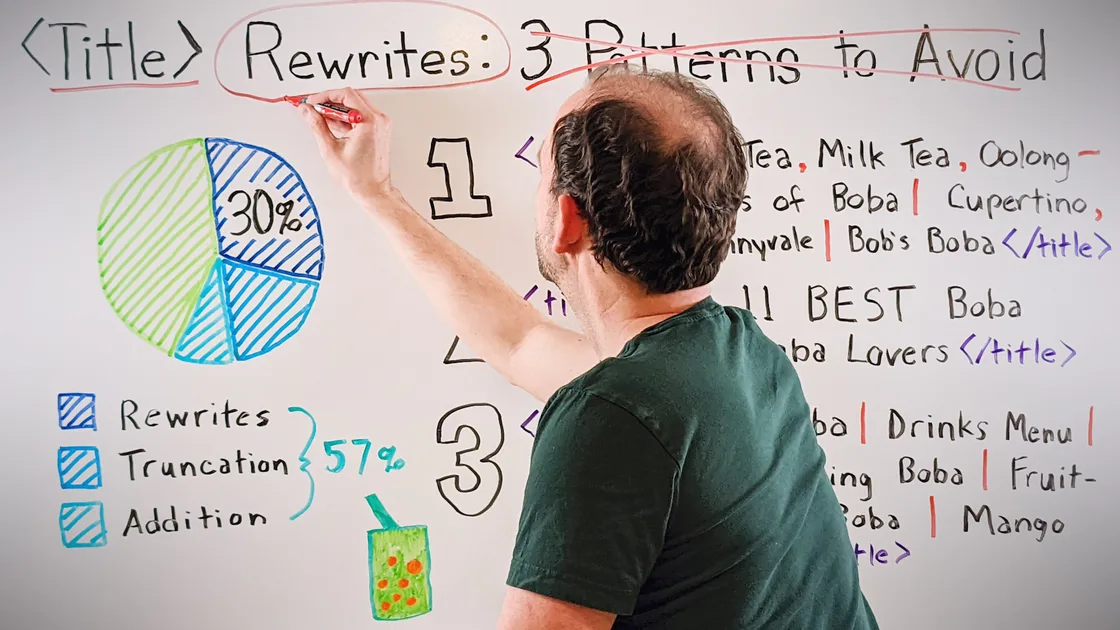 <Title> Rewrites: 3 Patterns to Avoid
30%
Rewrites
Truncation
Addition
57%
1
Tea, Milk Tea, Oolong-
of Boba | Cupertino,
| Bob's Boba </title>
11 BEST Boba
Lovers </title>
3
| Drinks Menu |
Boba | Fruit-
Boba | Mango